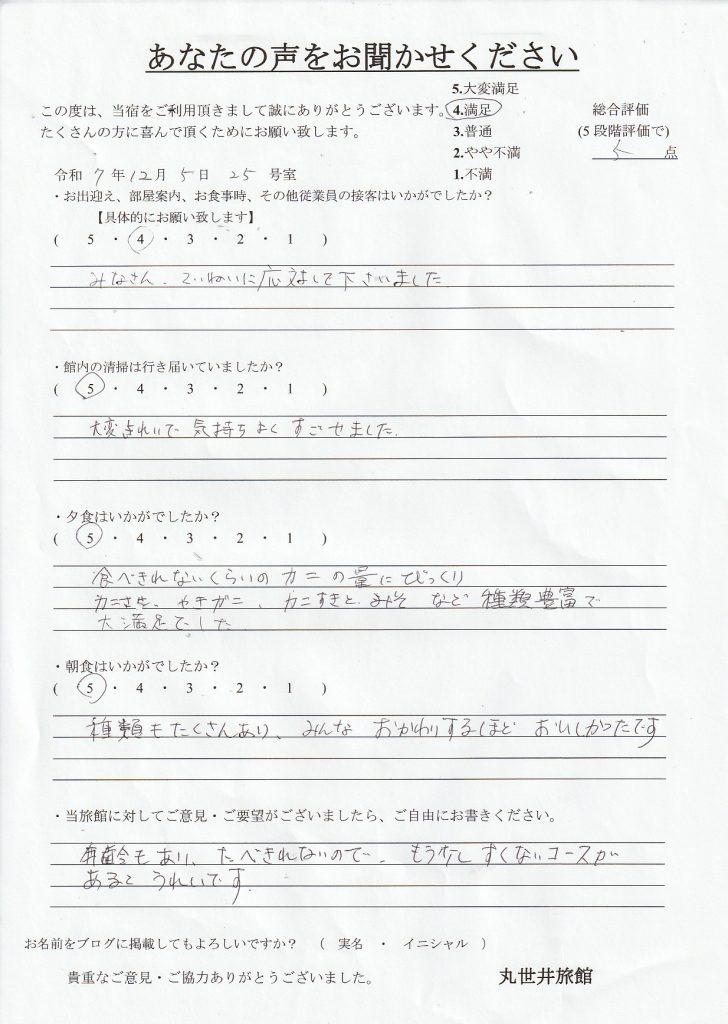 あなたの声をお聞かせください
5.大変満足
この度は、当宿をご利用頂きまして誠にありがとうございます。 4.満足 総合評価
たくさんの方に喜んで頂くためにお願い致します。 3.普通 (5段階評価で)
2.やや不満 5 点
令和 7年12月 5日 25 号室 1.不満
・お出迎え、部屋案内、お食事時、その他従業員の接客はいかがでしたか？
【具体的にお願い致します】
( 5 ・ 4 ・ 3 ・ 2 ・ 1 )
みなさん、ていねいに応対して下さいました
・館内の清掃は行き届いていましたか？
( 5 ・ 4 ・ 3 ・ 2 ・ 1 )
大変きれいで 気持ちよく すごせました.
・夕食はいかがでしたか？
( 5 ・ 4 ・ 3 ・ 2 ・ 1 )
食べきれないくらいの カニ の量に びっくり
カニさし、やきガニ、カニすきと みそ など 種類豊富で
大満足でした
・朝食はいかがでしたか？
( 5 ・ 4 ・ 3 ・ 2 ・ 1 )
種類もたくさんあり、みんな おかわりするほど おいしかったです
・当旅館に対してご意見・ご要望がございましたら、ご自由にお書きください。
年齢もあり、たべきれないので、もう少し すくないコースが
あると うれしいです.
お名前をブログに掲載してもよろしいですか？ （ 実名 ・ イニシャル ）
貴重なご意見・ご協力ありがとうございました。 丸世井旅館